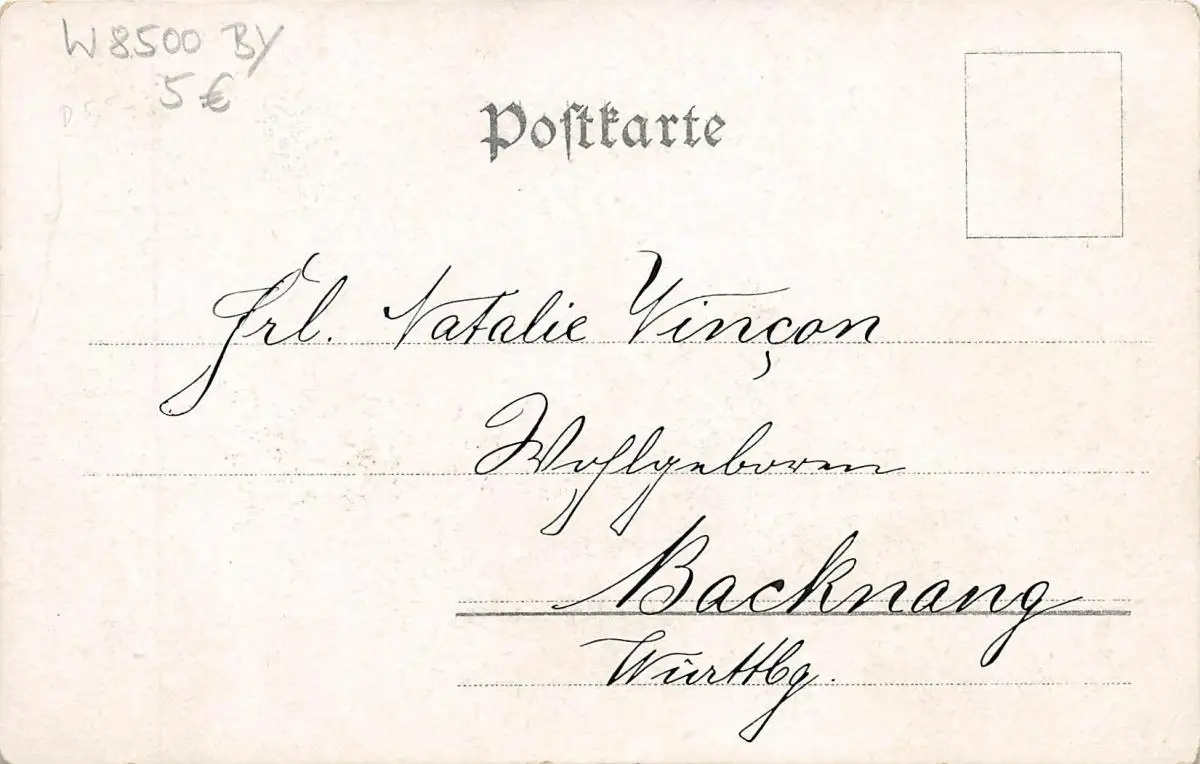 W 8500 BY
5 €
D 5
Postkarte
Frl. Natalie Vinçon
Wohlgeboren
Backnang
Württbg.